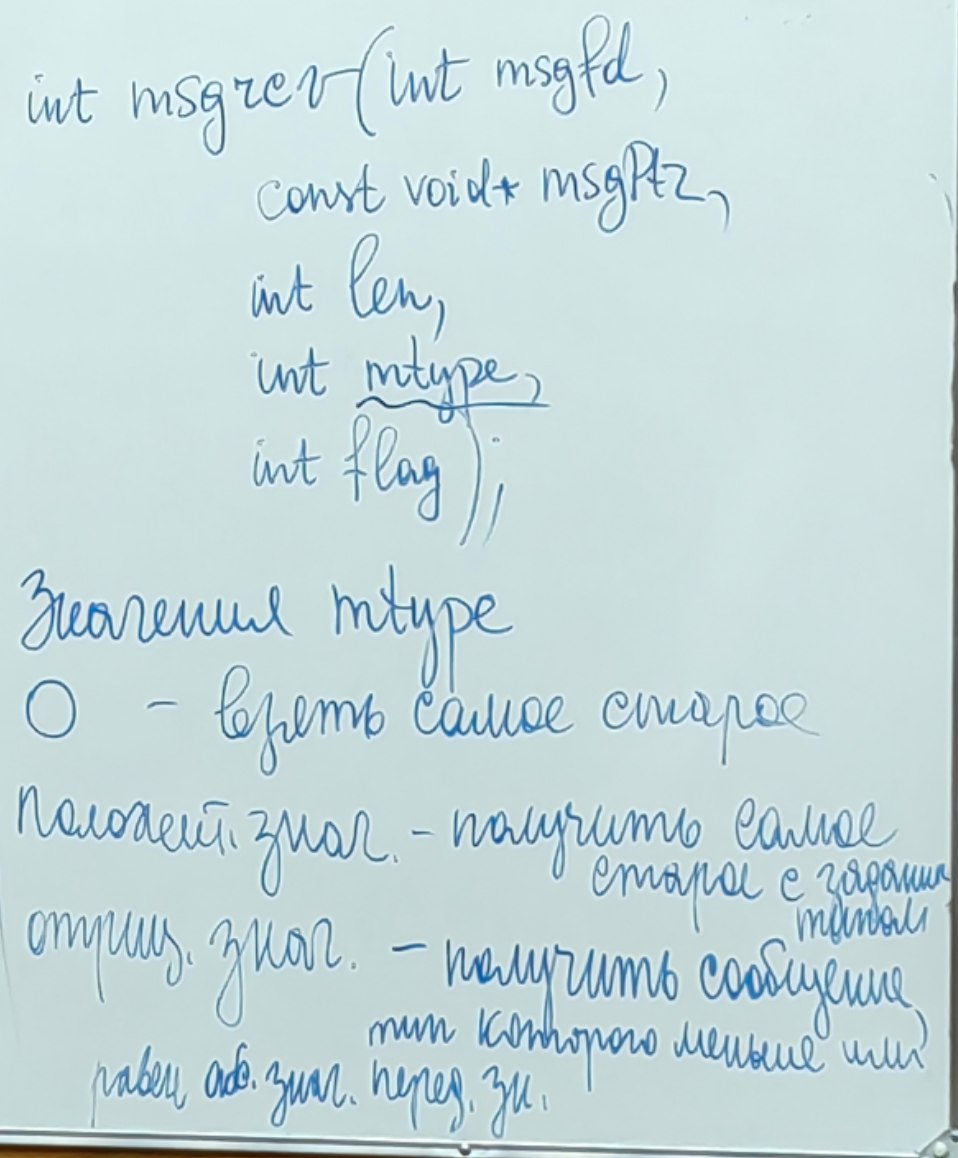 int msgrcv(int msgfd,
const void* msgPtr,
int len,
int mtype,
int flag);
Значения mtype
0 - взять самое старое
положит. знач. - получить самое
старое с заданным
типом
отриц. знач. - получить сообщение,
тип которого меньше или
равен абс. знач. перед. зн.